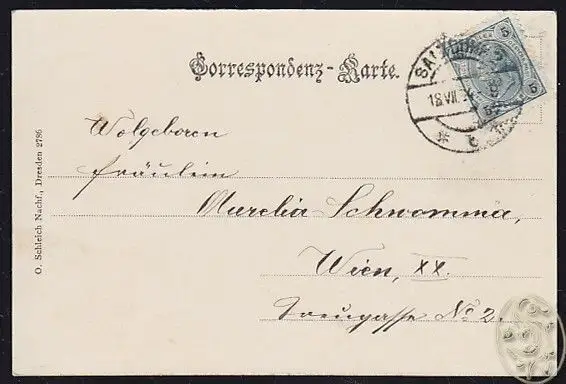 Correspondenz-Karte.
5
5
SALZBURG 2
18 VII
* c *
Wolgeboren
Fräulein
Aurelia Schwomma,
Wien, XX.
No 2.
O. Schleich Nachf., Dresden 2786